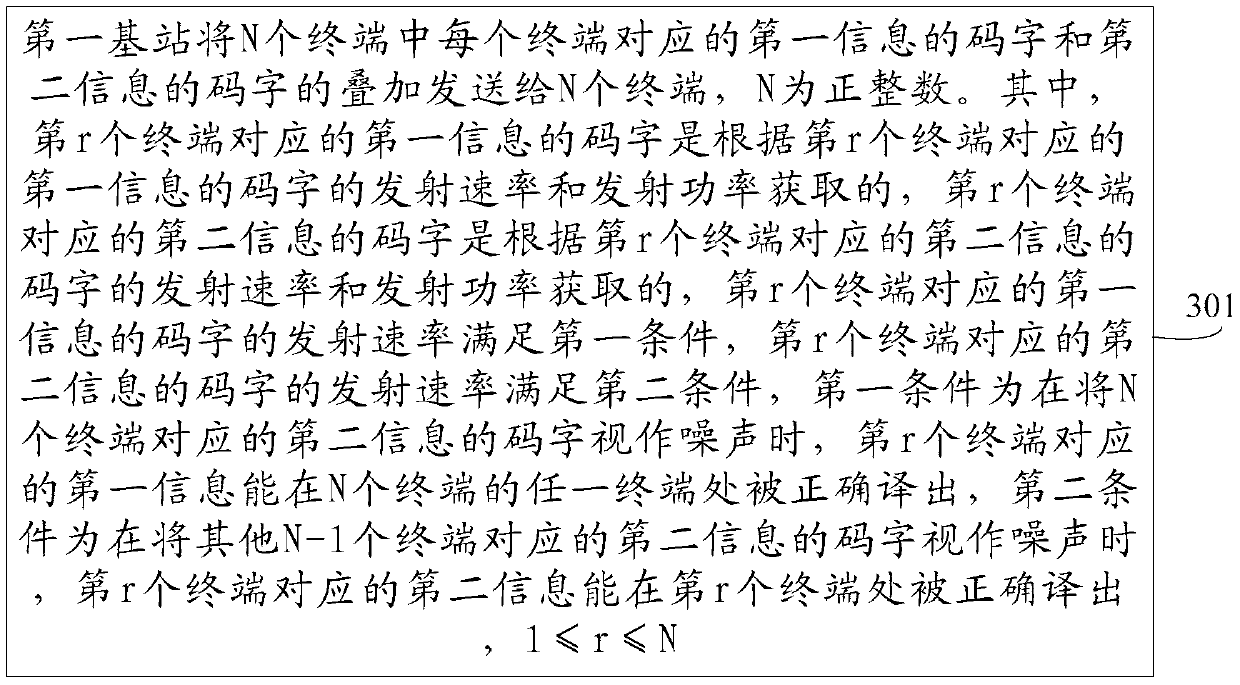 第一基站将N个终端中每个终端对应的第一信息的码字和第
二信息的码字的叠加发送给N个终端，N为正整数。其中，
第r个终端对应的第一信息的码字是根据第r个终端对应的
第一信息的码字的发射速率和发射功率获取的，第r个终端
对应的第二信息的码字是根据第r个终端对应的第二信息的
码字的发射速率和发射功率获取的，第r个终端对应的第一
信息的码字的发射速率满足第一条件，第r个终端对应的第
二信息的码字的发射速率满足第二条件，第一条件为在将N
个终端对应的第二信息的码字视作噪声时，第r个终端对应
的第一信息能在N个终端的任一终端处被正确译出，第二条
件为在将其他N-1个终端对应的第二信息的码字视作噪声时
，第r个终端对应的第二信息能在第r个终端处被正确译出
，1≤r≤N
301